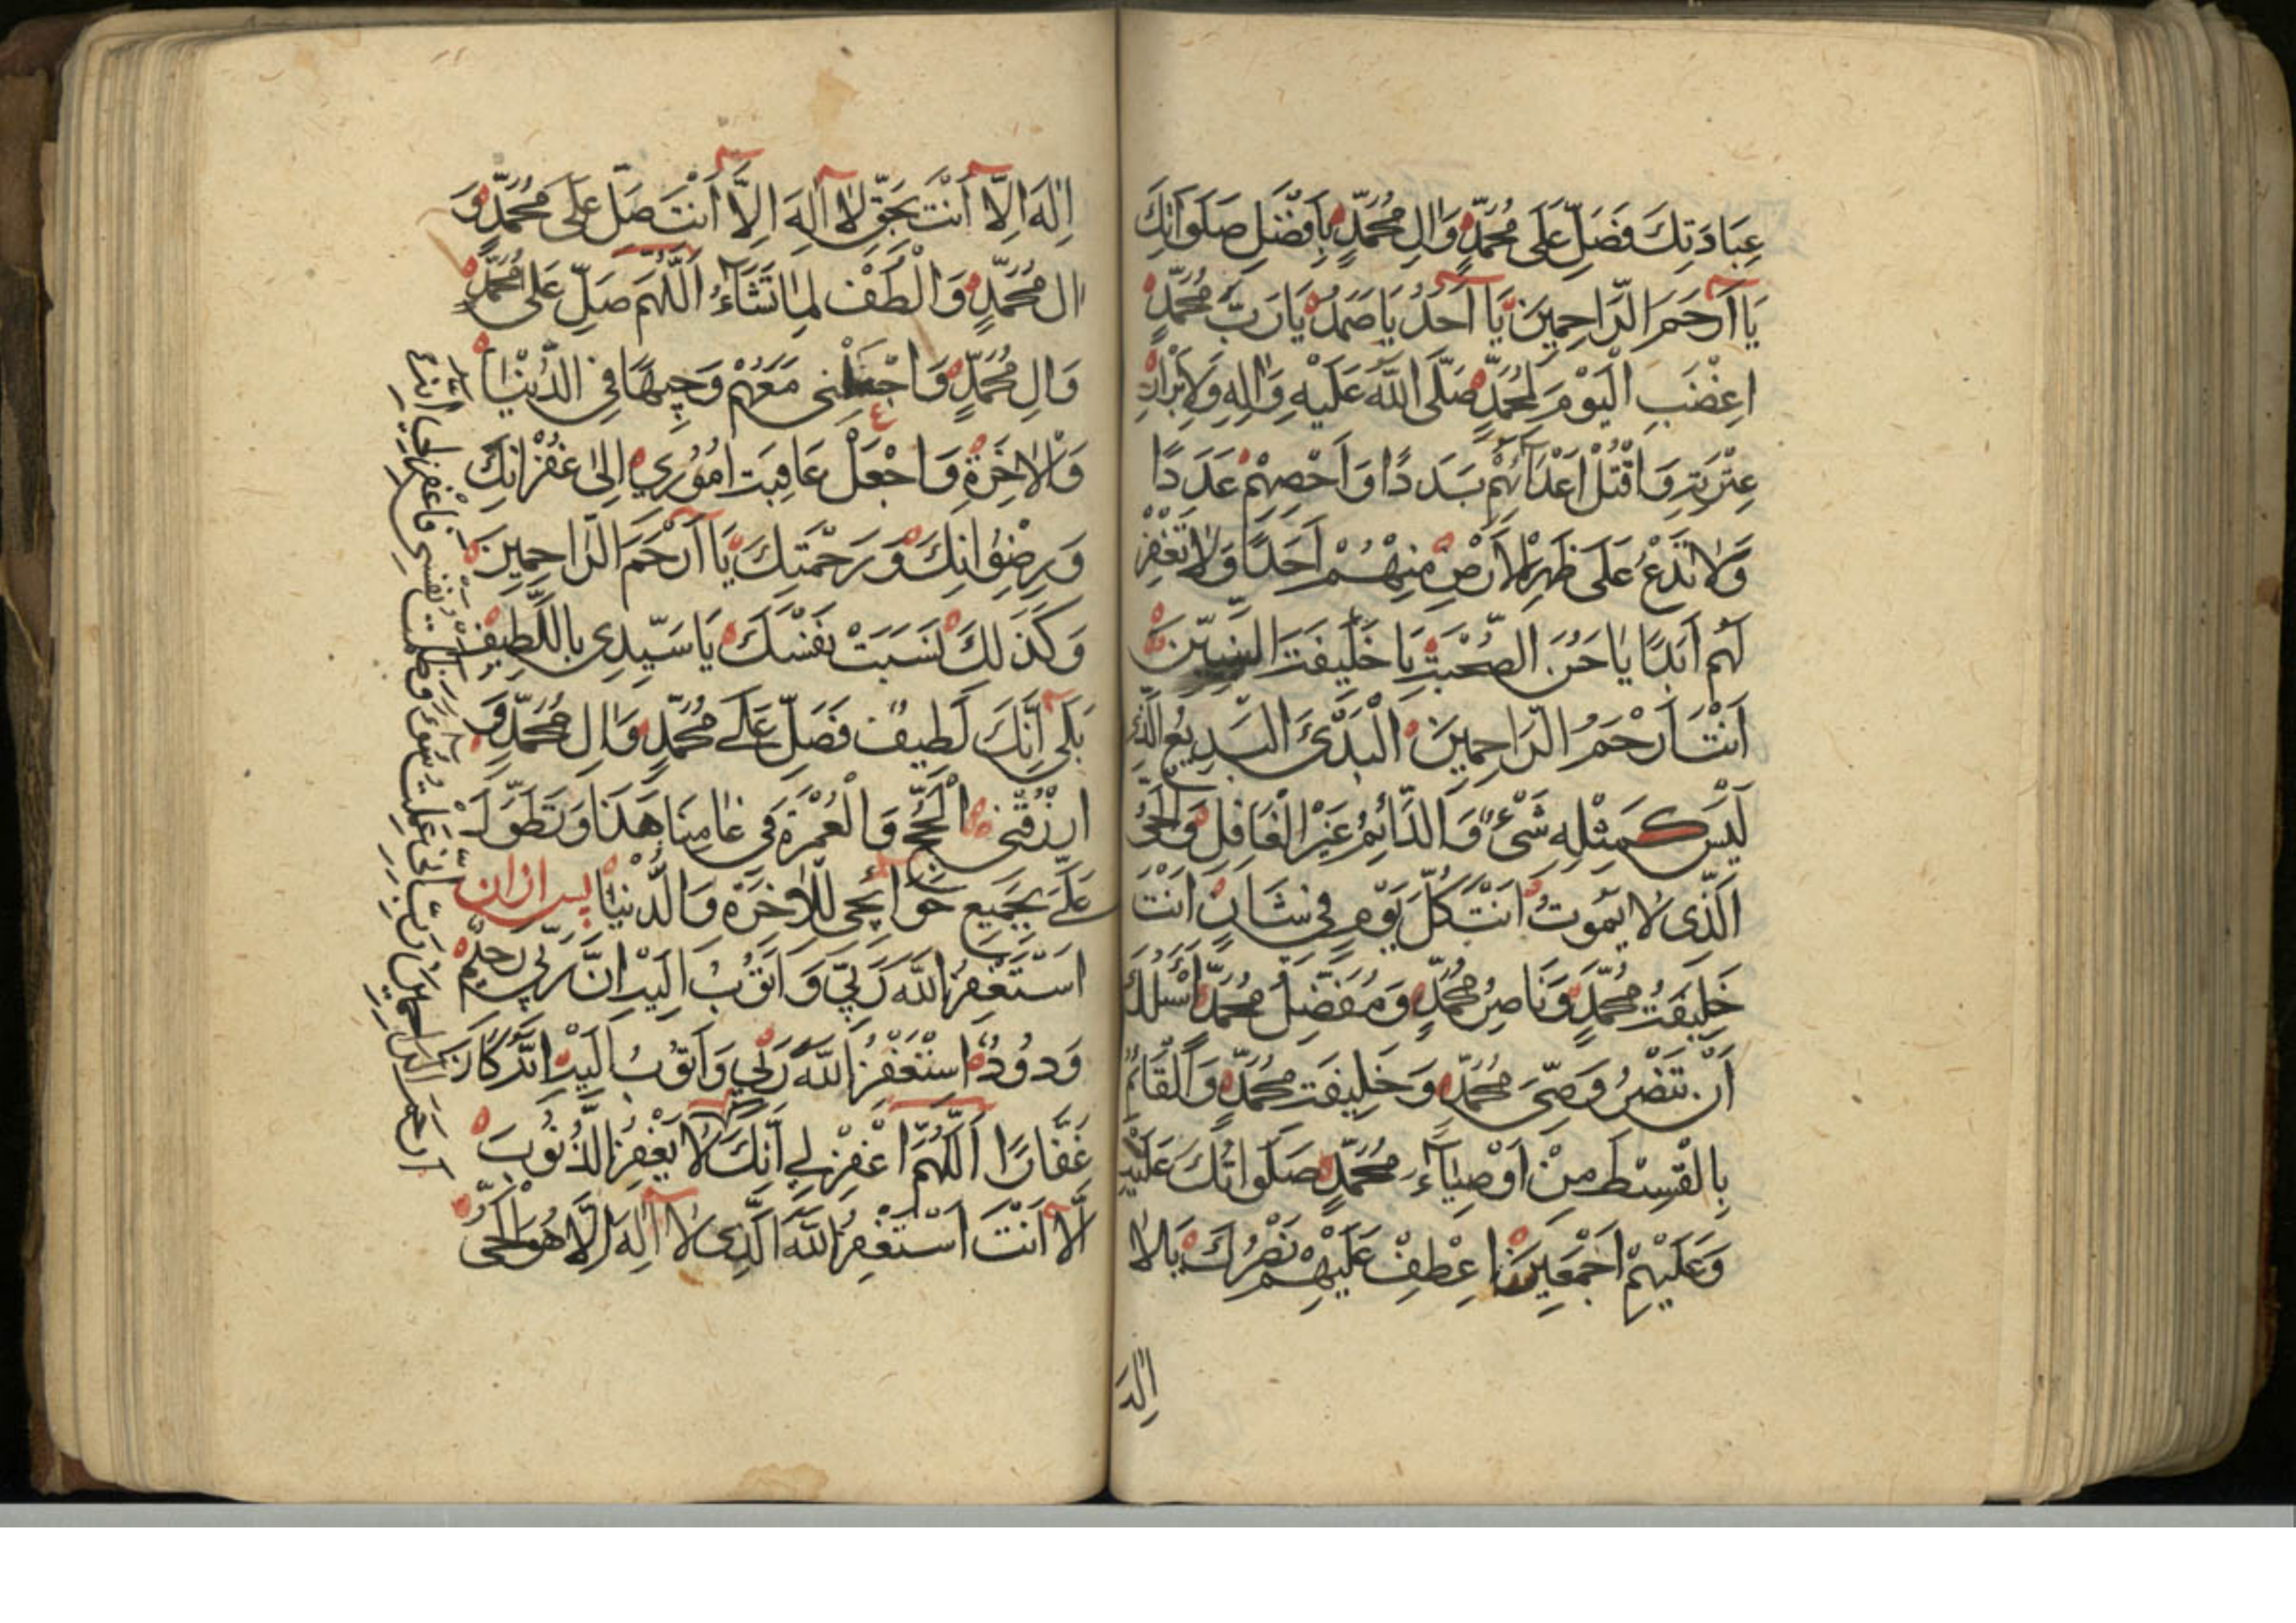 عِبَادَتِكَ فَصَلِّ عَلَى مُحَمَّدٍ وَالِ مُحَمَّدٍ بِاَفْضَلِ صَلَوَاتِكَ
يَا اَرْحَمَ الرَّاحِمِينَ يَا اَحَدُ يَا صَمَدُ يَا رَبَّ مُحَمَّدٍ
اغْضَبِ الْيَوْمَ لِمُحَمَّدٍ صَلَّى اللّٰهُ عَلَيْهِ وَالِهِ وَلِاَبْرَارِ
عِتْرَتِهِ وَاقْتُلْ اَعْدَائَهُمْ بَدَدًا وَاَحْصِهِمْ عَدَدًا
وَلَا تَدَعْ عَلَى ظَهْرِ الْاَرْضِ مِنْهُمْ اَحَدًا وَلَا تَغْفِرْ
لَهُمْ اَبَدًا يَا حَسَنَ الصُّحْبَةِ يَا خَلِيفَتَ النَّبِيِّينَ
اَنْتَ اَرْحَمُ الرَّاحِمِينَ الْبَدْىءُ الْبَدِيعُ الَّذِى
لَيْسَ كَمِثْلِهِ شَىْءٌ وَالدَّائِمُ غَيْرُ الْغَافِلِ وَالْحَىُّ
الَّذِى لَا يَمُوتُ اَنْتَ كُلَّ يَوْمٍ فِى شَانٍ اَنْتَ
خَلِيفَتُ مُحَمَّدٍ وَنَاصِرُ مُحَمَّدٍ وَمُفَضِّلُ مُحَمَّدٍ اَسْئَلُكَ
اَنْ تَنْصُرَ وَصِىَّ مُحَمَّدٍ وَخَلِيفَتَ مُحَمَّدٍ وَالْقَائِمَ
بِالْقِسْطِ مِنْ اَوْصِيَاءِ مُحَمَّدٍ صَلَوَاتُكَ عَلَيْهِ
وَعَلَيْهِمْ اَجْمَعِينَ اعْطِفْ عَلَيْهِمْ نَصْرَكَ يَا لَا
اِلٰهَ
اِلٰهَ اِلَّا اَنْتَ بِحَقِّ لَا اِلٰهَ اِلَّا اَنْتَ صَلِّ عَلَى مُحَمَّدٍ وَ
الِ مُحَمَّدٍ وَالْطُفْ لِمَا تَشَاءُ اَللّٰهُمَّ صَلِّ عَلَى مُحَمَّدٍ
وَالِ مُحَمَّدٍ وَاجْعَلْنِى مَعَهُمْ وَجِيهًا فِى الدُّنْيَا
وَالْاٰخِرَةِ وَاجْعَلْ عَاقِبَتَ اُمُورِي اِلىٰ غُفْرَانِكَ
وَرِضْوَانِكَ وَرَحْمَتِكَ يَا اَرْحَمَ الرَّاحِمِينَ
وَكَذَلِكَ نَسَبْتَ نَفْسَكَ يَا سَيِّدِى بِاللَّطِيفِ
بَلَى اِنَّكَ لَطِيفٌ فَصَلِّ عَلَى مُحَمَّدٍ وَالِ مُحَمَّدٍ وَ
ارْزُقْنِى الْحَجَّ وَالْعُمْرَةَ فِى عَامِنَا هَذَا وَتَطَوَّلْ
عَلَىَّ بِجَمِيعِ حَوَائِجِى لِلْاٰخِرَةِ وَالدُّنْيَا پس از ان
اَسْتَغْفِرُ اللّٰهَ رَبِّى وَاَتُوبُ اِلَيْهِ اِنَّ رَبِّى رَحِيمٌ
وَدُودٌ اَسْتَغْفِرُ اللّٰهَ رَبِّى وَاَتُوبُ اِلَيْهِ اِنَّهُ كَانَ
غَفَّارًا اَللّٰهُمَّ اغْفِرْ لِى اِنَّكَ لَا يَغْفِرُ الذُّنُوبَ
اِلَّا اَنْتَ اَسْتَغْفِرُ اللّٰهَ الَّذِى لَا اِلٰهَ اِلَّا هُوَ الْحَىُّ
رَبِّ اِنِّى عَمِلْتُ سُوءً وَظَلَمْتُ نَفْسِى فَاغْفِرْ لِى يَا
اَرْحَمَ الرَّاحِمِينَ